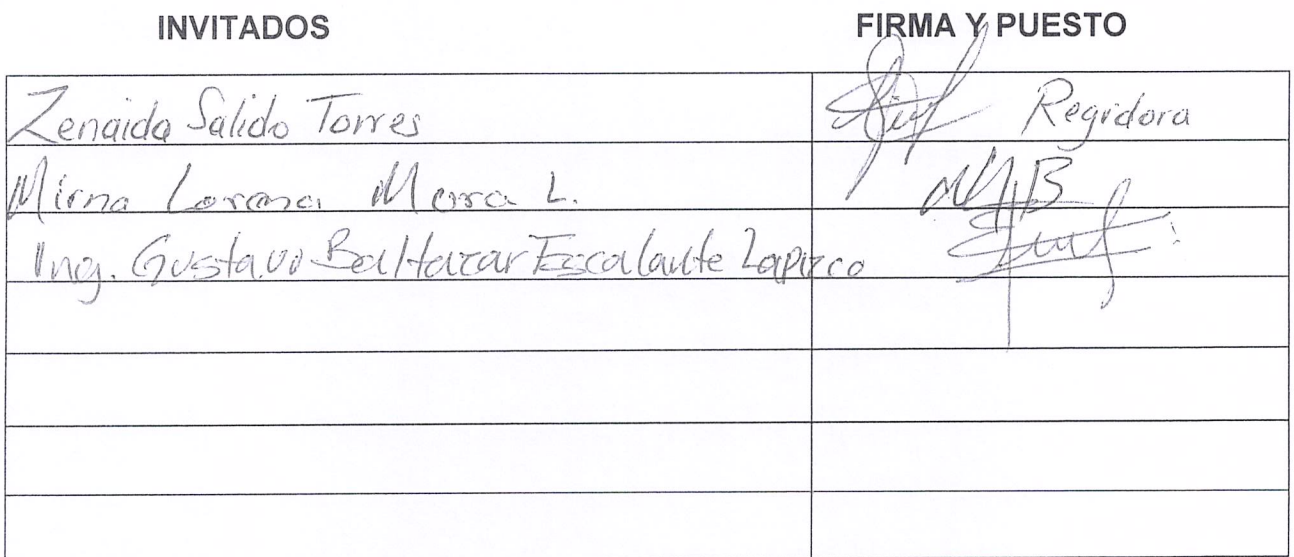 INVITADOS FIRMA Y PUESTO
Zenaida Salido Torres Regidora
Mirna Lorena Mora L.
Ing. Gustavo Baltazar Escalante